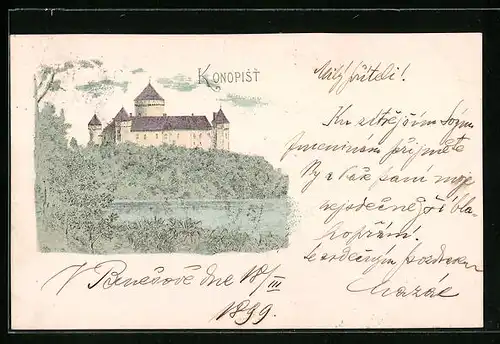 KONOPIŠŤ
Milý příteli!
Ku zítřejším Svým
jmeninám přijměte
Vy i Vaše paní moje
nejsrdečnější bla-
hopřání.
Se srdečným pozdravem
V Benešově dne 18/III
1899.